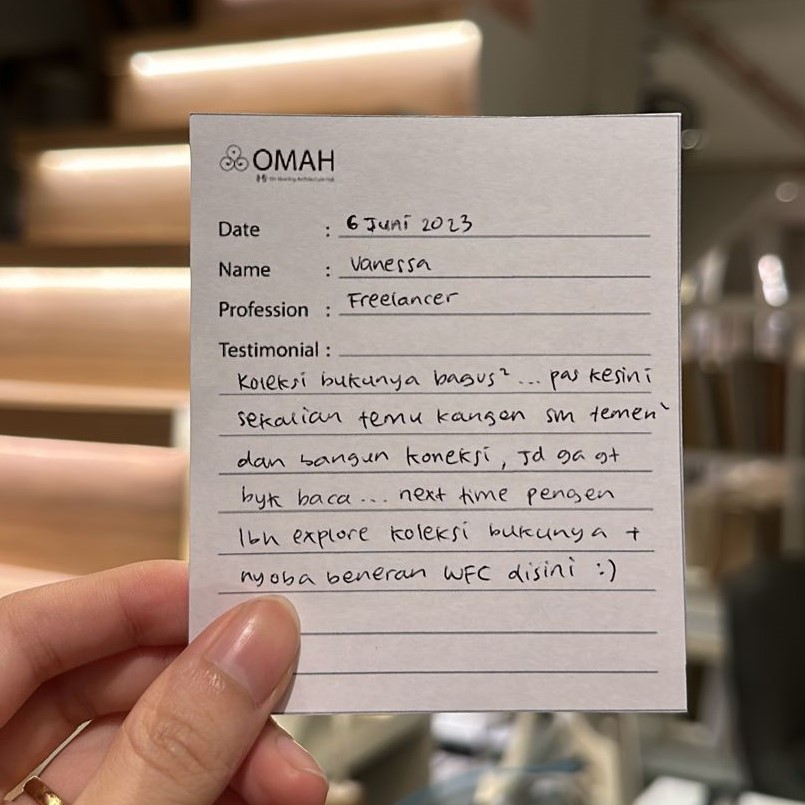 OMAH
Date : 6 Juni 2023
Name : Vanessa
Profession : Freelancer
Testimonial :
Koleksi bukunya bagus² ... pas kesini
sekalian temu kangen sm temen`
dan bangun koneksi, Jd ga gt
byk baca ... next time pengen
lbh explore koleksi bukunya +
nyoba beneran WFC disini :)